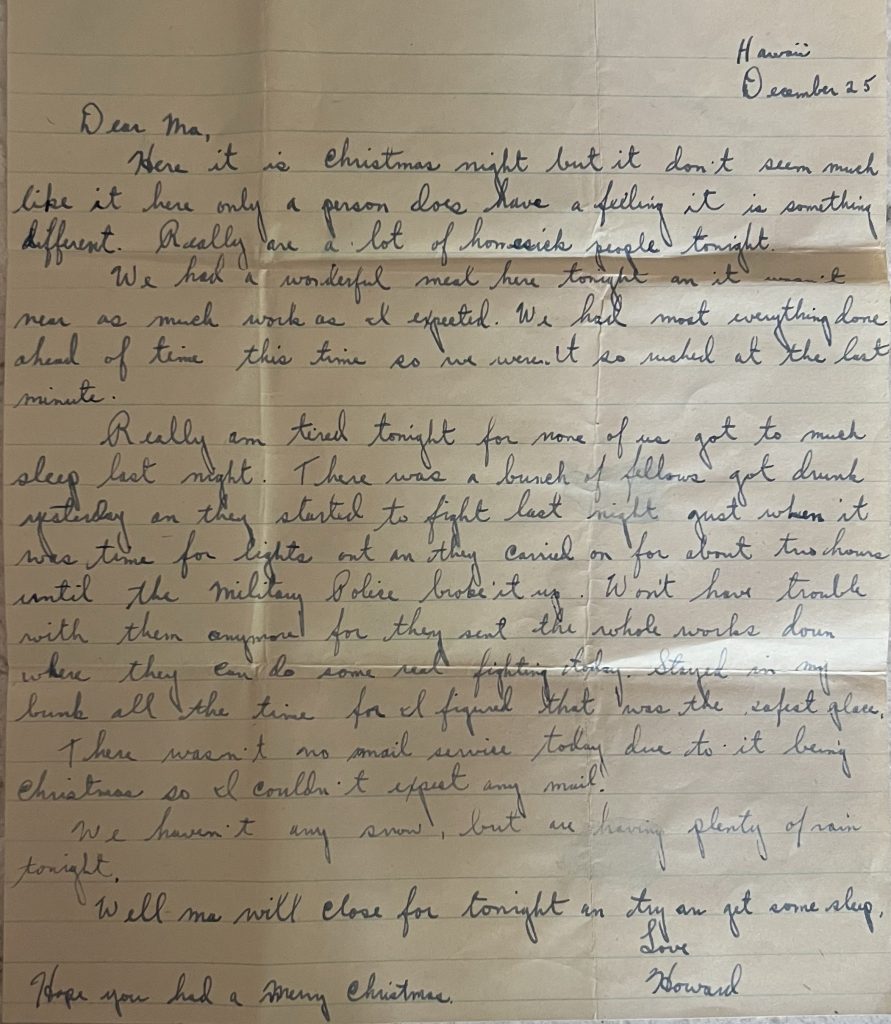 Hawaii
December 25
Dear Ma,
Here it is Christmas night but it don't seem much
like it here only a person does have a feeling it is something
different. Really are a lot of homesick people tonight.
We had a wonderful meal here tonight an it wasn't
near as much work as I expected. We had most everything done
ahead of time this time so we weren't so rushed at the last
minute.
Really am tired tonight for none of us got to much
sleep last night. There was a bunch of fellows got drunk
yesterday an they started to fight last night just when it
was time for lights out an they carried on for about two hours
until the Military Police broke it up. Won't have trouble
with them anymore for they sent the whole works down
where they can do some real fighting today. Stayed in my
bunk all the time for I figured that was the safest place.
There wasn't no mail service today due to it being
Christmas so I couldn't expect any mail.
We haven't any snow, but are having plenty of rain
tonight.
Well ma will close for tonight an try an get some sleep.
Love
Howard
Hope you had a Merry Christmas.